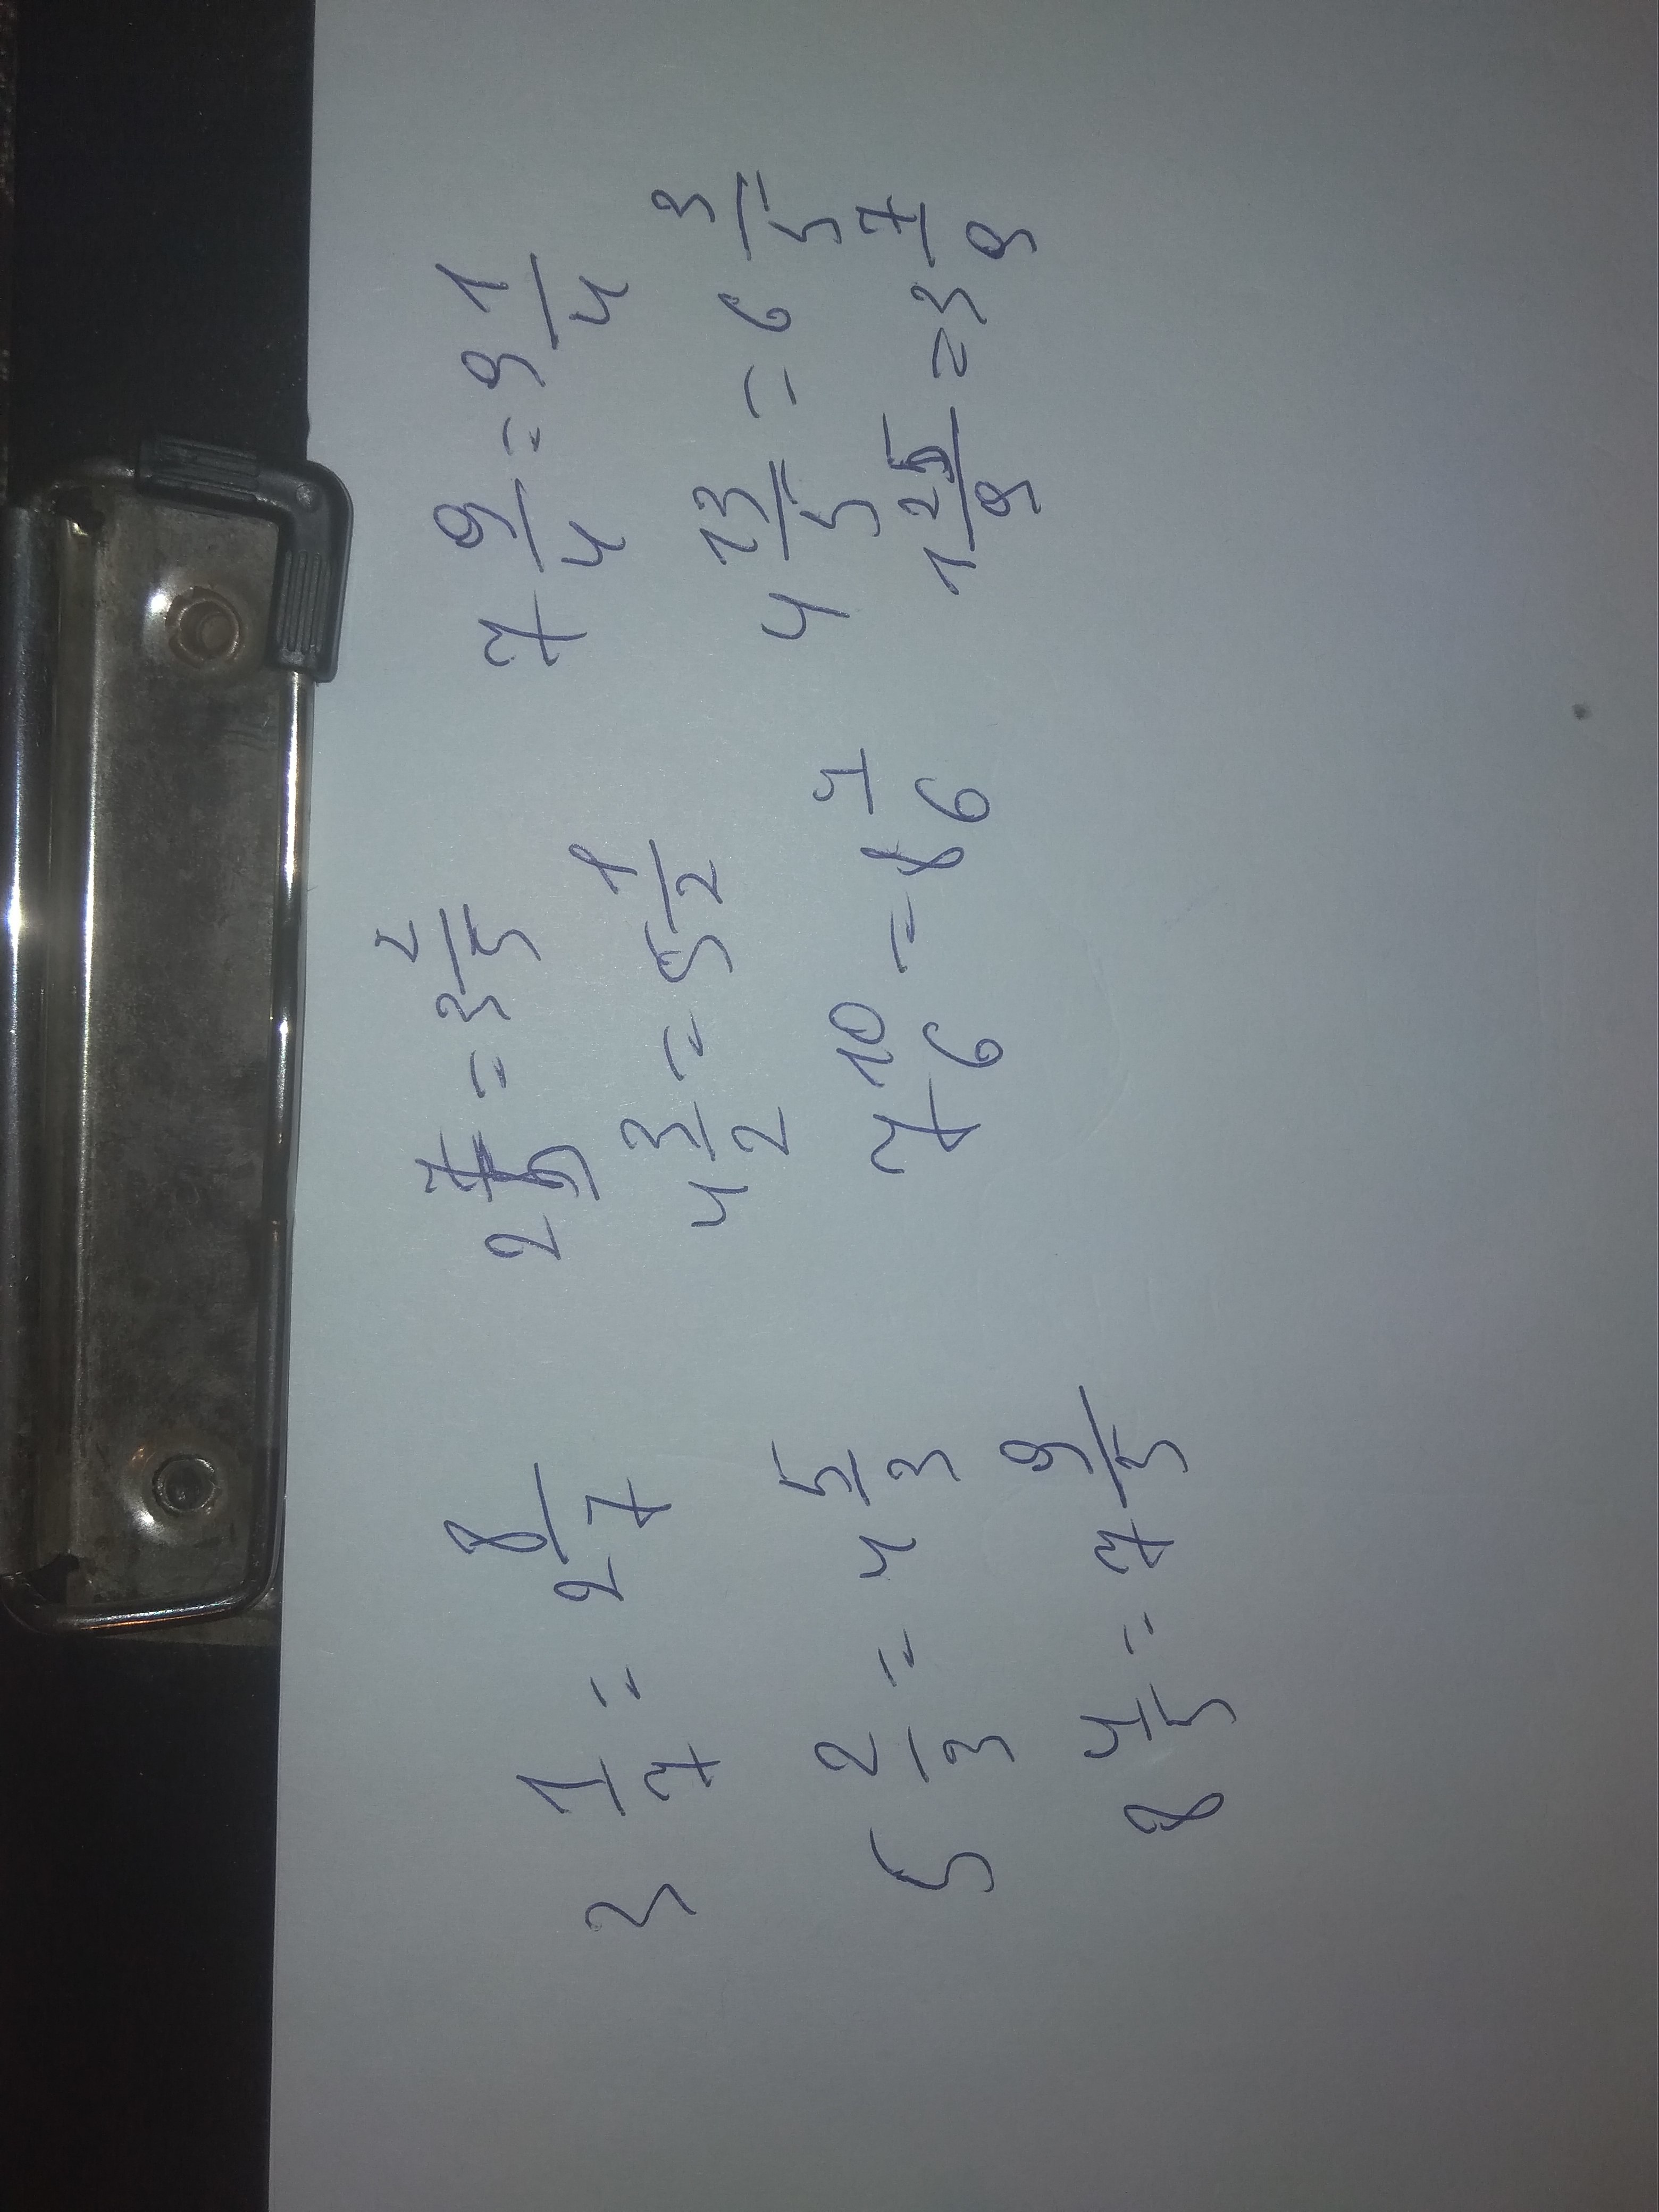 3 1/7 = 2 8/7
5 2/3 = 4 5/3
8 4/5 = 7 9/5
2 7/5 = 3 2/5
4 3/2 = 5 1/2
7 10/6 = 8 4/6
7 9/4 = 9 1/4
4 13/5 = 6 3/5
1 25/9 = 3 7/9